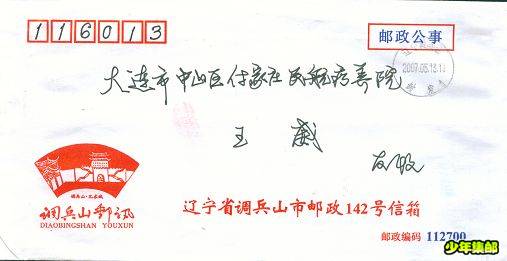 116013
邮政公事
2007.05.18.18
大连市中山区付家庄民航疗养院
王 威
友收
调兵山邮讯
DIAOBINGSHAN YOUXUN
辽宁省调兵山市邮政142号信箱
邮政编码 112700
少年集邮